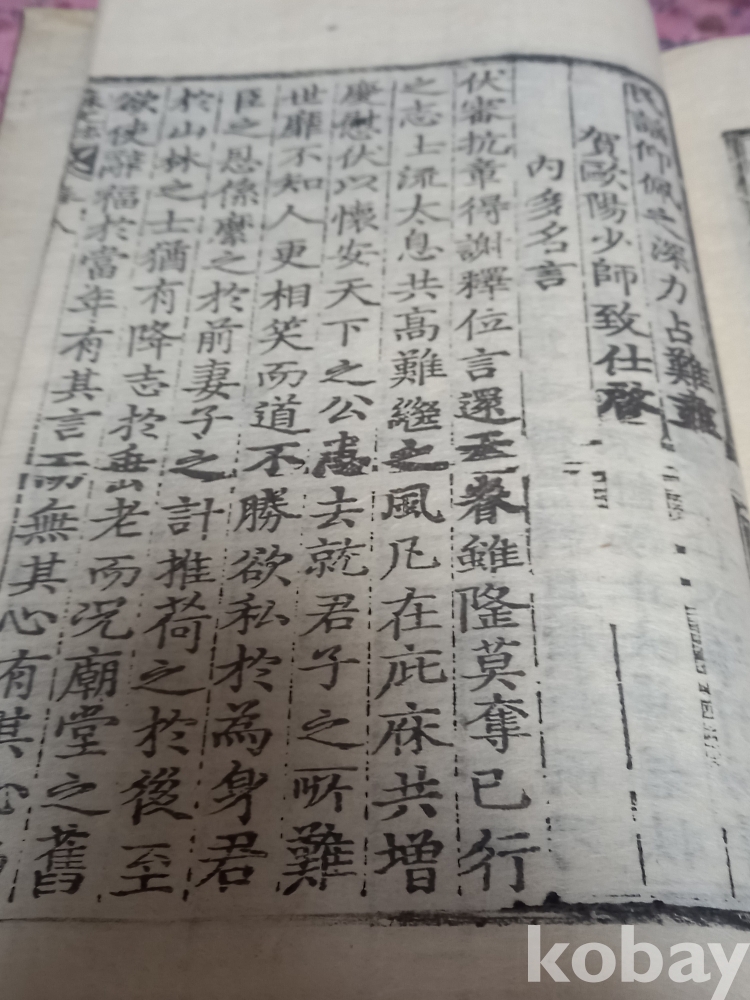 民謡仰佩之深力占難難
賀歐陽少師致仕啓
內多名言
伏審抗章得謝釋位言還天眷雖隆莫奪已行
之志士流太息共高難繼之風凡在庇庥共增
慶慰伏以懷安天下之公患去就君子之所難
世靡不知人更相笑而道不勝欲私於為身君
臣之恩係縻之於前妻子之計推荷之於後至
於山林之士猶有降志於垂老而況廟堂之舊
欲使辭福於當年有其言而無其心有其心
kobay